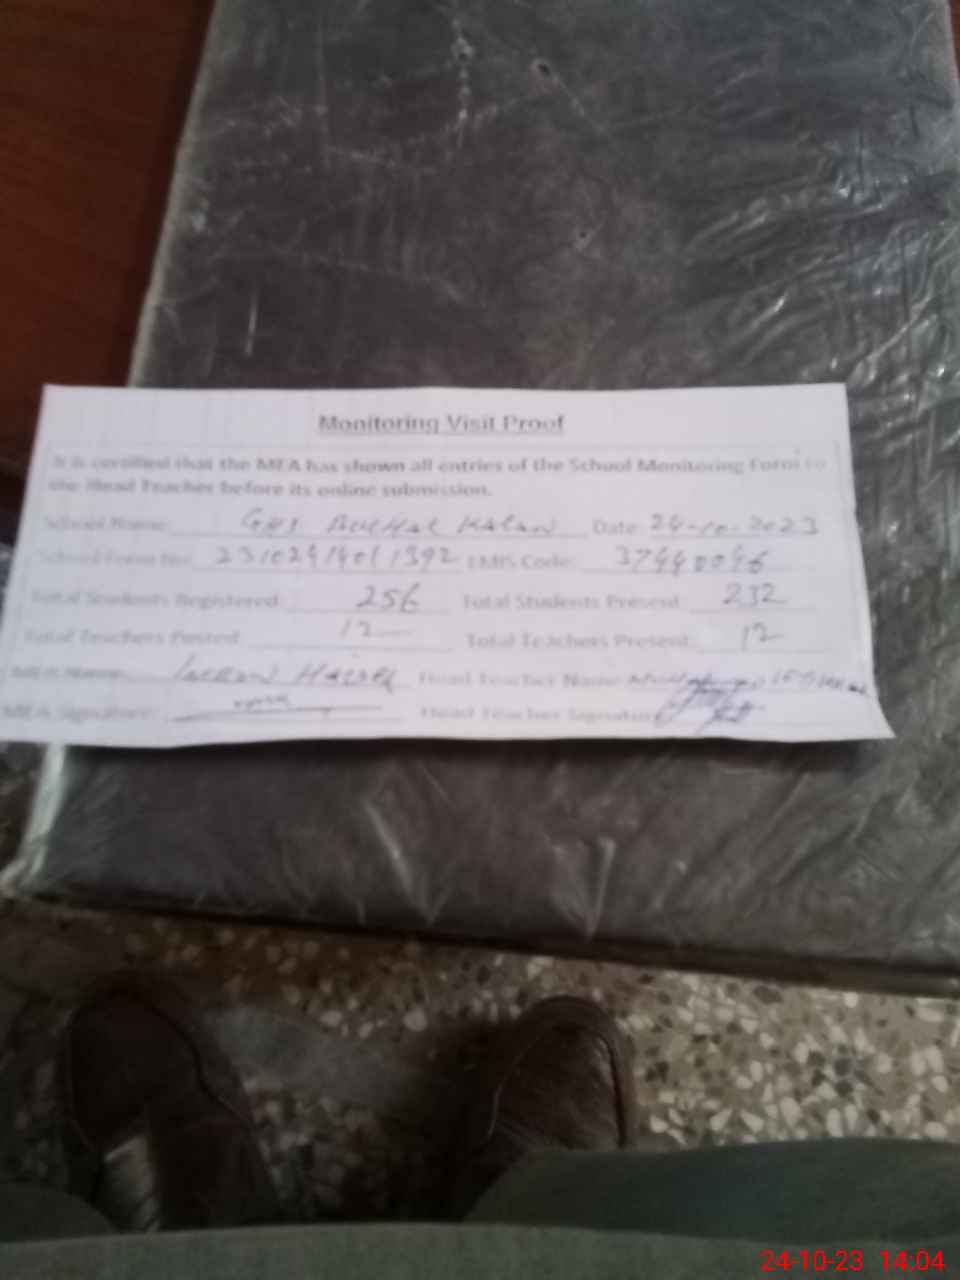 Monitoring Visit Proof
It is certified that the MEA has shown all entries of the School Monitoring Form to
the Head Teacher before its online submission.
School Name: GHS BUCHAL KALAN Date: 24-10-2023
School Form No: EMIS Code: 37440046
Total Students Registered: 256 Total Students Present: 232
Total Teachers Posted: 12 Total Teachers Present: 12
MEA Name: Head Teacher Name
MEA Signature: Head Teacher Signature
24-10-23 14:04